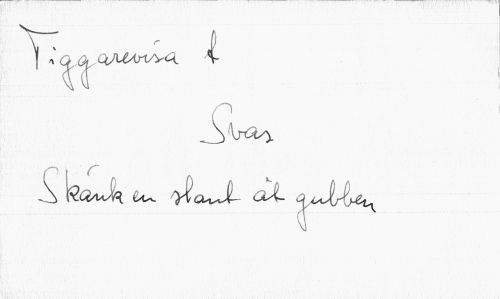 Tiggarevisa t
Svar
Skänk en slant åt gubben